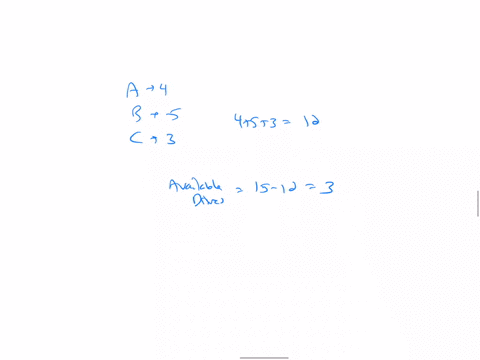 A → 4
B → 5
C → 3
4+5+3 = 12
Available = 15 - 12 = 3